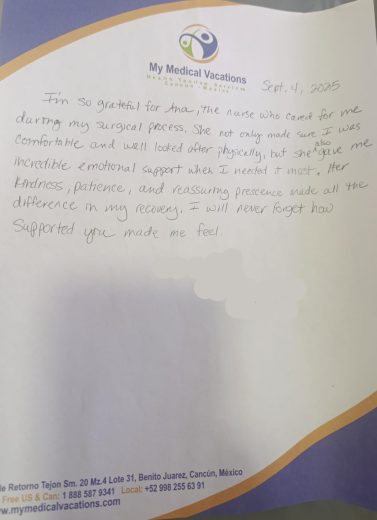 My Medical Vacations
Health Tourism Services
Cancun - Mexico
Sept. 4, 2025
I'm so grateful for Ana, the nurse who cared for me
during my surgical process. She not only made sure I was
comfortable and well looked after physically, but she also gave me
incredible emotional support when I needed it most. Her
kindness, patience, and reassuring prescence made all the
difference in my recovery. I will never forget how
supported you made me feel.
le Retorno Tejon Sm. 20 Mz.4 Lote 31, Benito Juarez, Cancún, México
Free US & Can: 1 888 587 9341 Local: +52 998 255 63 91
w.mymedicalvacations.com